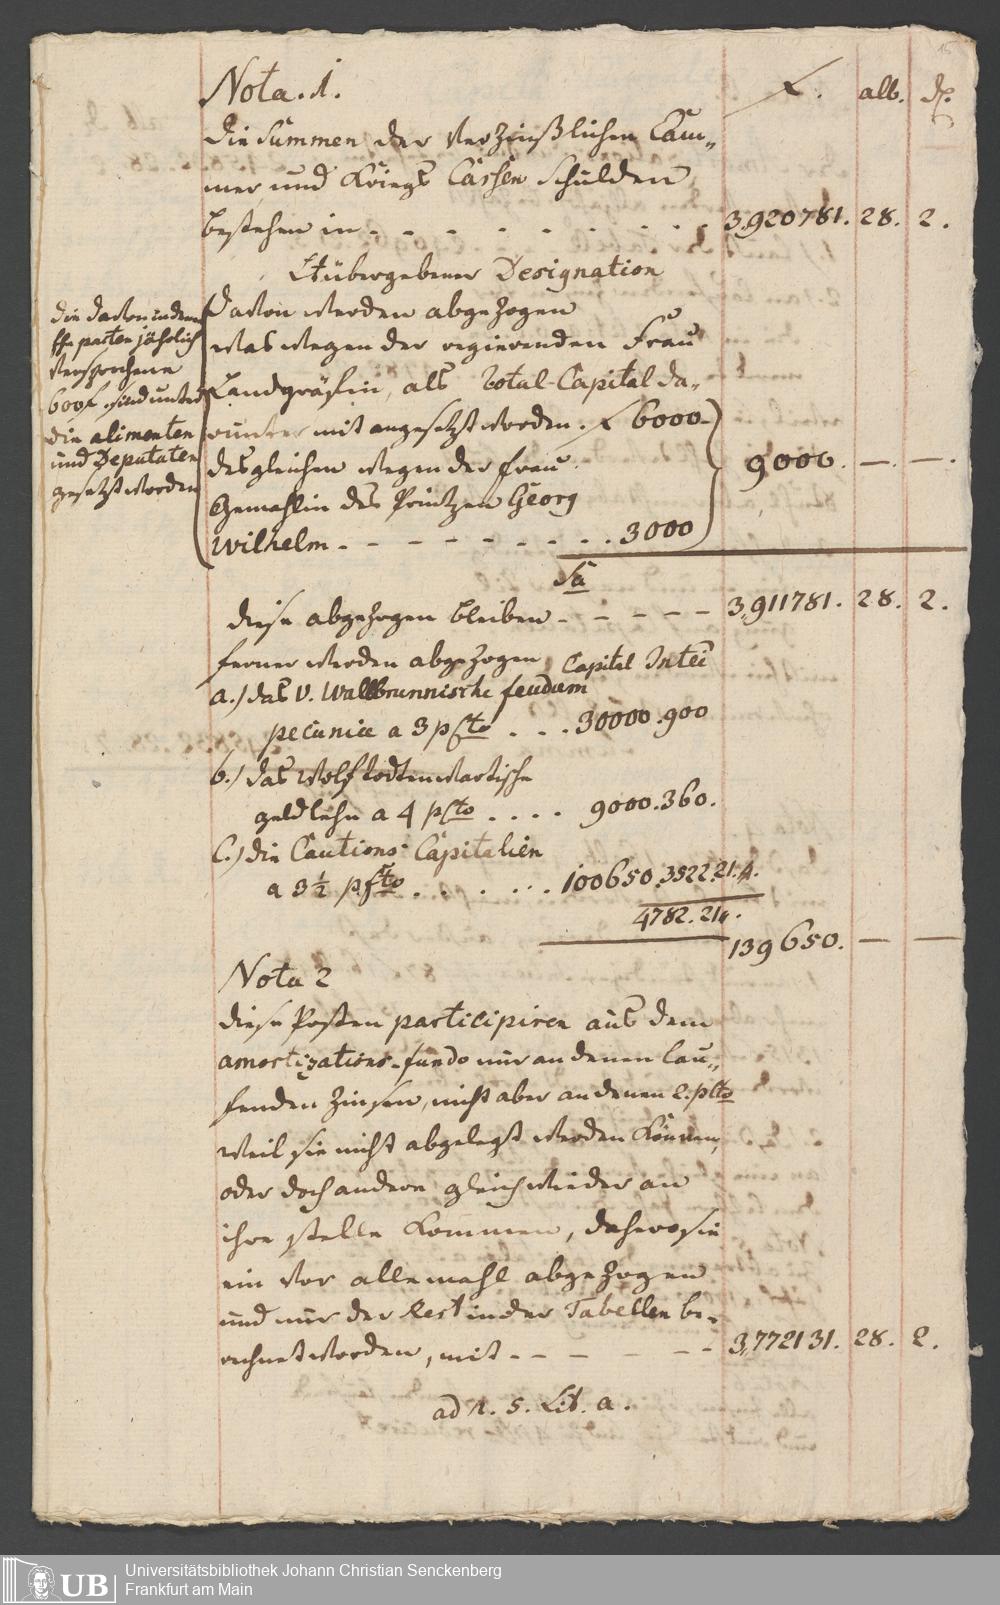 15
Nota. 1.
f. alb. d.
die Summen der Verzinßlichen Cam„
mer und Kriegs Cassen Schulden
bestehen in - - - - - - - - 3,920781. 28. 2.
Lt übergebener Designation
davon werden abgezogen
was wegen der regierenden Frau
Landgräfin, als Total-Capital da„
runter mit angesetzt worden. f 6000-
desgleichen wegen der Frau 9000. — . — .
Gemahlin des Printzen Georg
Wilhelm - - - - - - - . . 3000
die davon in denen
Ehe pacten jährlich
Versprochene
600 f. sind unter
die alimenten
und Deputaten
gesetzt worden
Sa
diese abgezogen bleiben - - - - - 3,911781. 28. 2.
ferner werden abgezogen Capital Inter
a.) das V. Wallbrunnische feudum
pecuniae a 3 pCto . . . 30000. 900
b.) das Wolfskodtenwartische
geldlehn a 4 pCto . . . . 9000. 360.
C.) die Cautions-Capitalien
a 3½ pCto . . . . . . . 100650. 3522. 21. 4.
4782. 21 4.
139650. — —
Nota 2
diese Posten participiren aus dem
amortizations-fundo nur an denen lau„
fenden Zinsen, nicht aber an denen 2. pCto
weil sie nicht abgelegt werden können,
oder doch andere gleich wieder an
ihre stelle kommen, dahero sie
ein vor allemahl abgezogen
und nur der Rest in der Tabellen be„
rechnet worden, mit - - - - - - 3,772131. 28. 2.
ad N. 5. Lit. a.
UB
Universitätsbibliothek Johann Christian Senckenberg
Frankfurt am Main